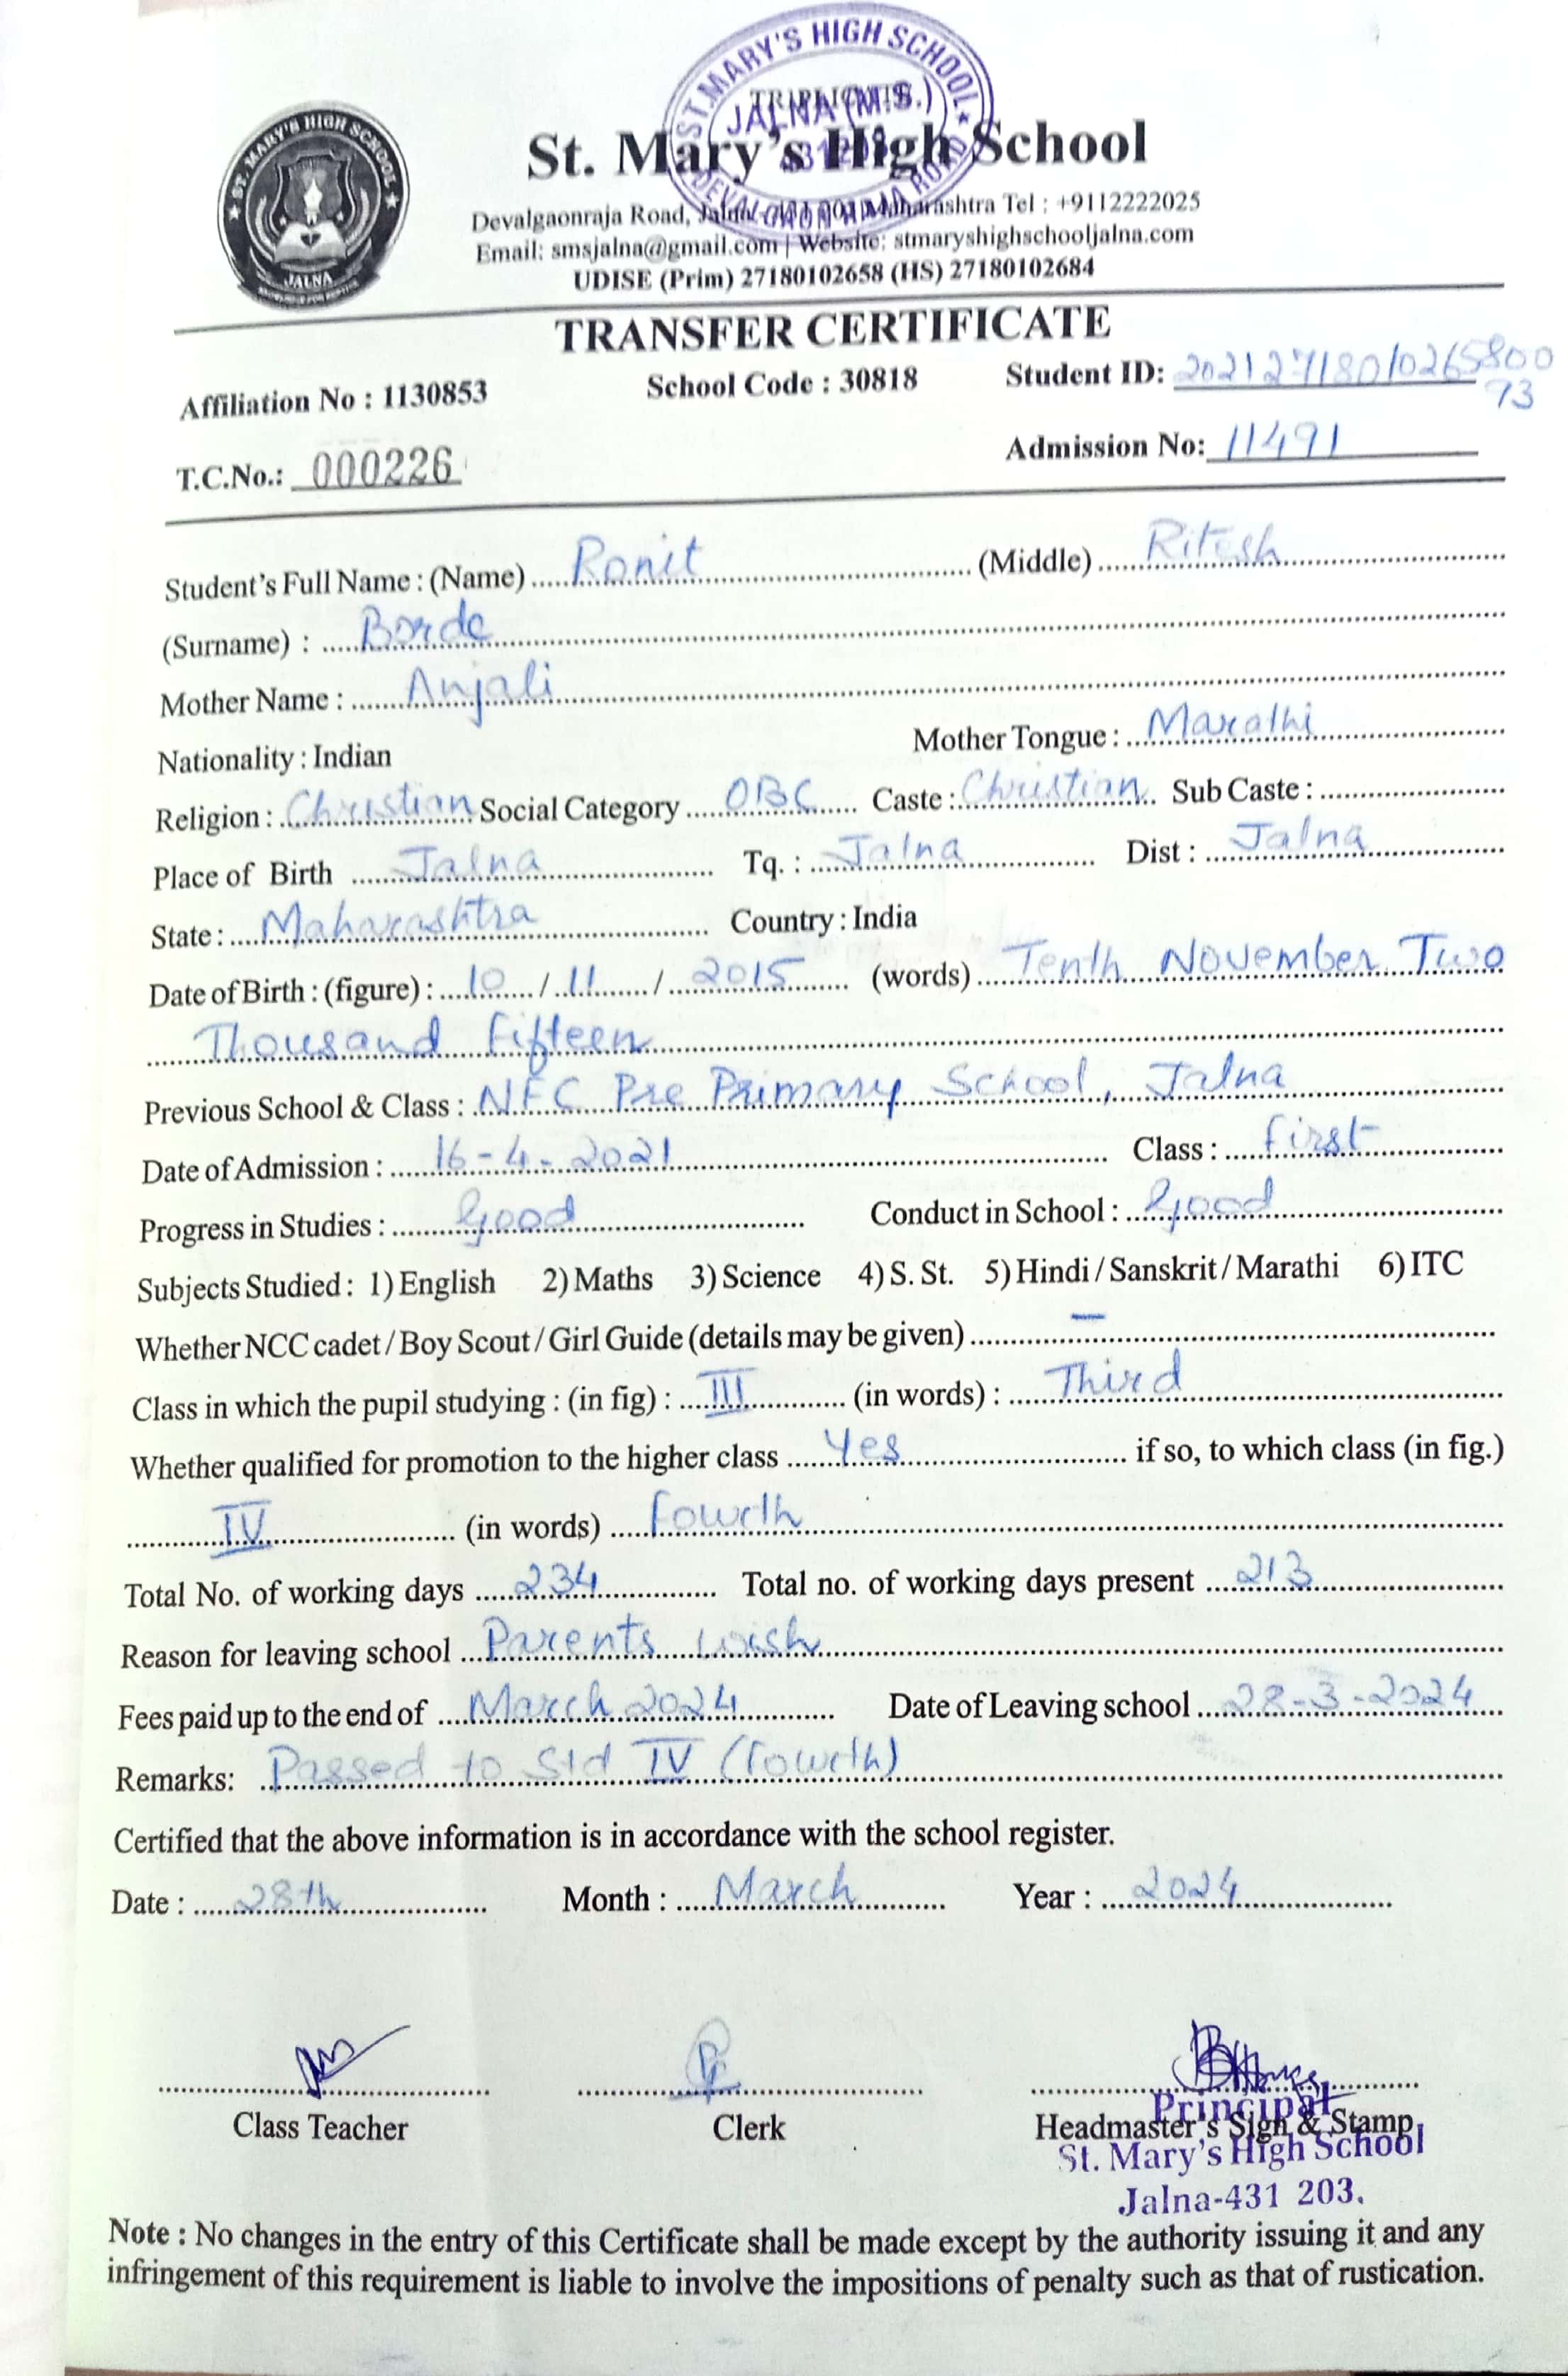 ST. MARY'S HIGH SCHOOL
JALNA (M.S.)
St. Mary's High School
ST. MARY'S HIGH SCHOOL
JALNA
Devalgaonraja Road, Maharashtra Tel : +9112222025
Email: smsjalna@gmail.com | Website: stmaryshighschooljalna.com
UDISE (Prim) 27180102658 (HS) 27180102684
TRANSFER CERTIFICATE
Affiliation No : 1130853 School Code : 30818 Student ID: 20212718010265800
93
T.C.No.: 000226 Admission No: 11491
Student's Full Name : (Name) Ronit (Middle) Ritesh
(Surname) : Borde
Mother Name : Anjali
Nationality : Indian Mother Tongue : Marathi
Religion : Christian Social Category OBC Caste : Christian Sub Caste :
Place of Birth Jalna Tq. : Jalna Dist : Jalna
State : Maharashtra Country : India
Date of Birth : (figure) : 10 / 11 / 2015 (words) Tenth November Two
Thousand Fifteen
Previous School & Class : NFC Pre Primary School, Jalna
Date of Admission : 16-4-2021 Class : First
Progress in Studies : Good Conduct in School : Good
Subjects Studied : 1) English 2) Maths 3) Science 4) S. St. 5) Hindi / Sanskrit / Marathi 6) ITC
Whether NCC cadet / Boy Scout / Girl Guide (details may be given) –
Class in which the pupil studying : (in fig) : III (in words) : Third
Whether qualified for promotion to the higher class Yes if so, to which class (in fig.)
IV (in words) Fourth
Total No. of working days 234 Total no. of working days present 213
Reason for leaving school Parents wish
Fees paid up to the end of March 2024 Date of Leaving school 28-3-2024
Remarks: Passed to Std IV (Fourth)
Certified that the above information is in accordance with the school register.
Date : 28th Month : March Year : 2024
Class Teacher Clerk Headmaster's Sign & Stamp
Principal
St. Mary's High School
Jalna-431 203.
Note : No changes in the entry of this Certificate shall be made except by the authority issuing it and any
infringement of this requirement is liable to involve the impositions of penalty such as that of rustication.